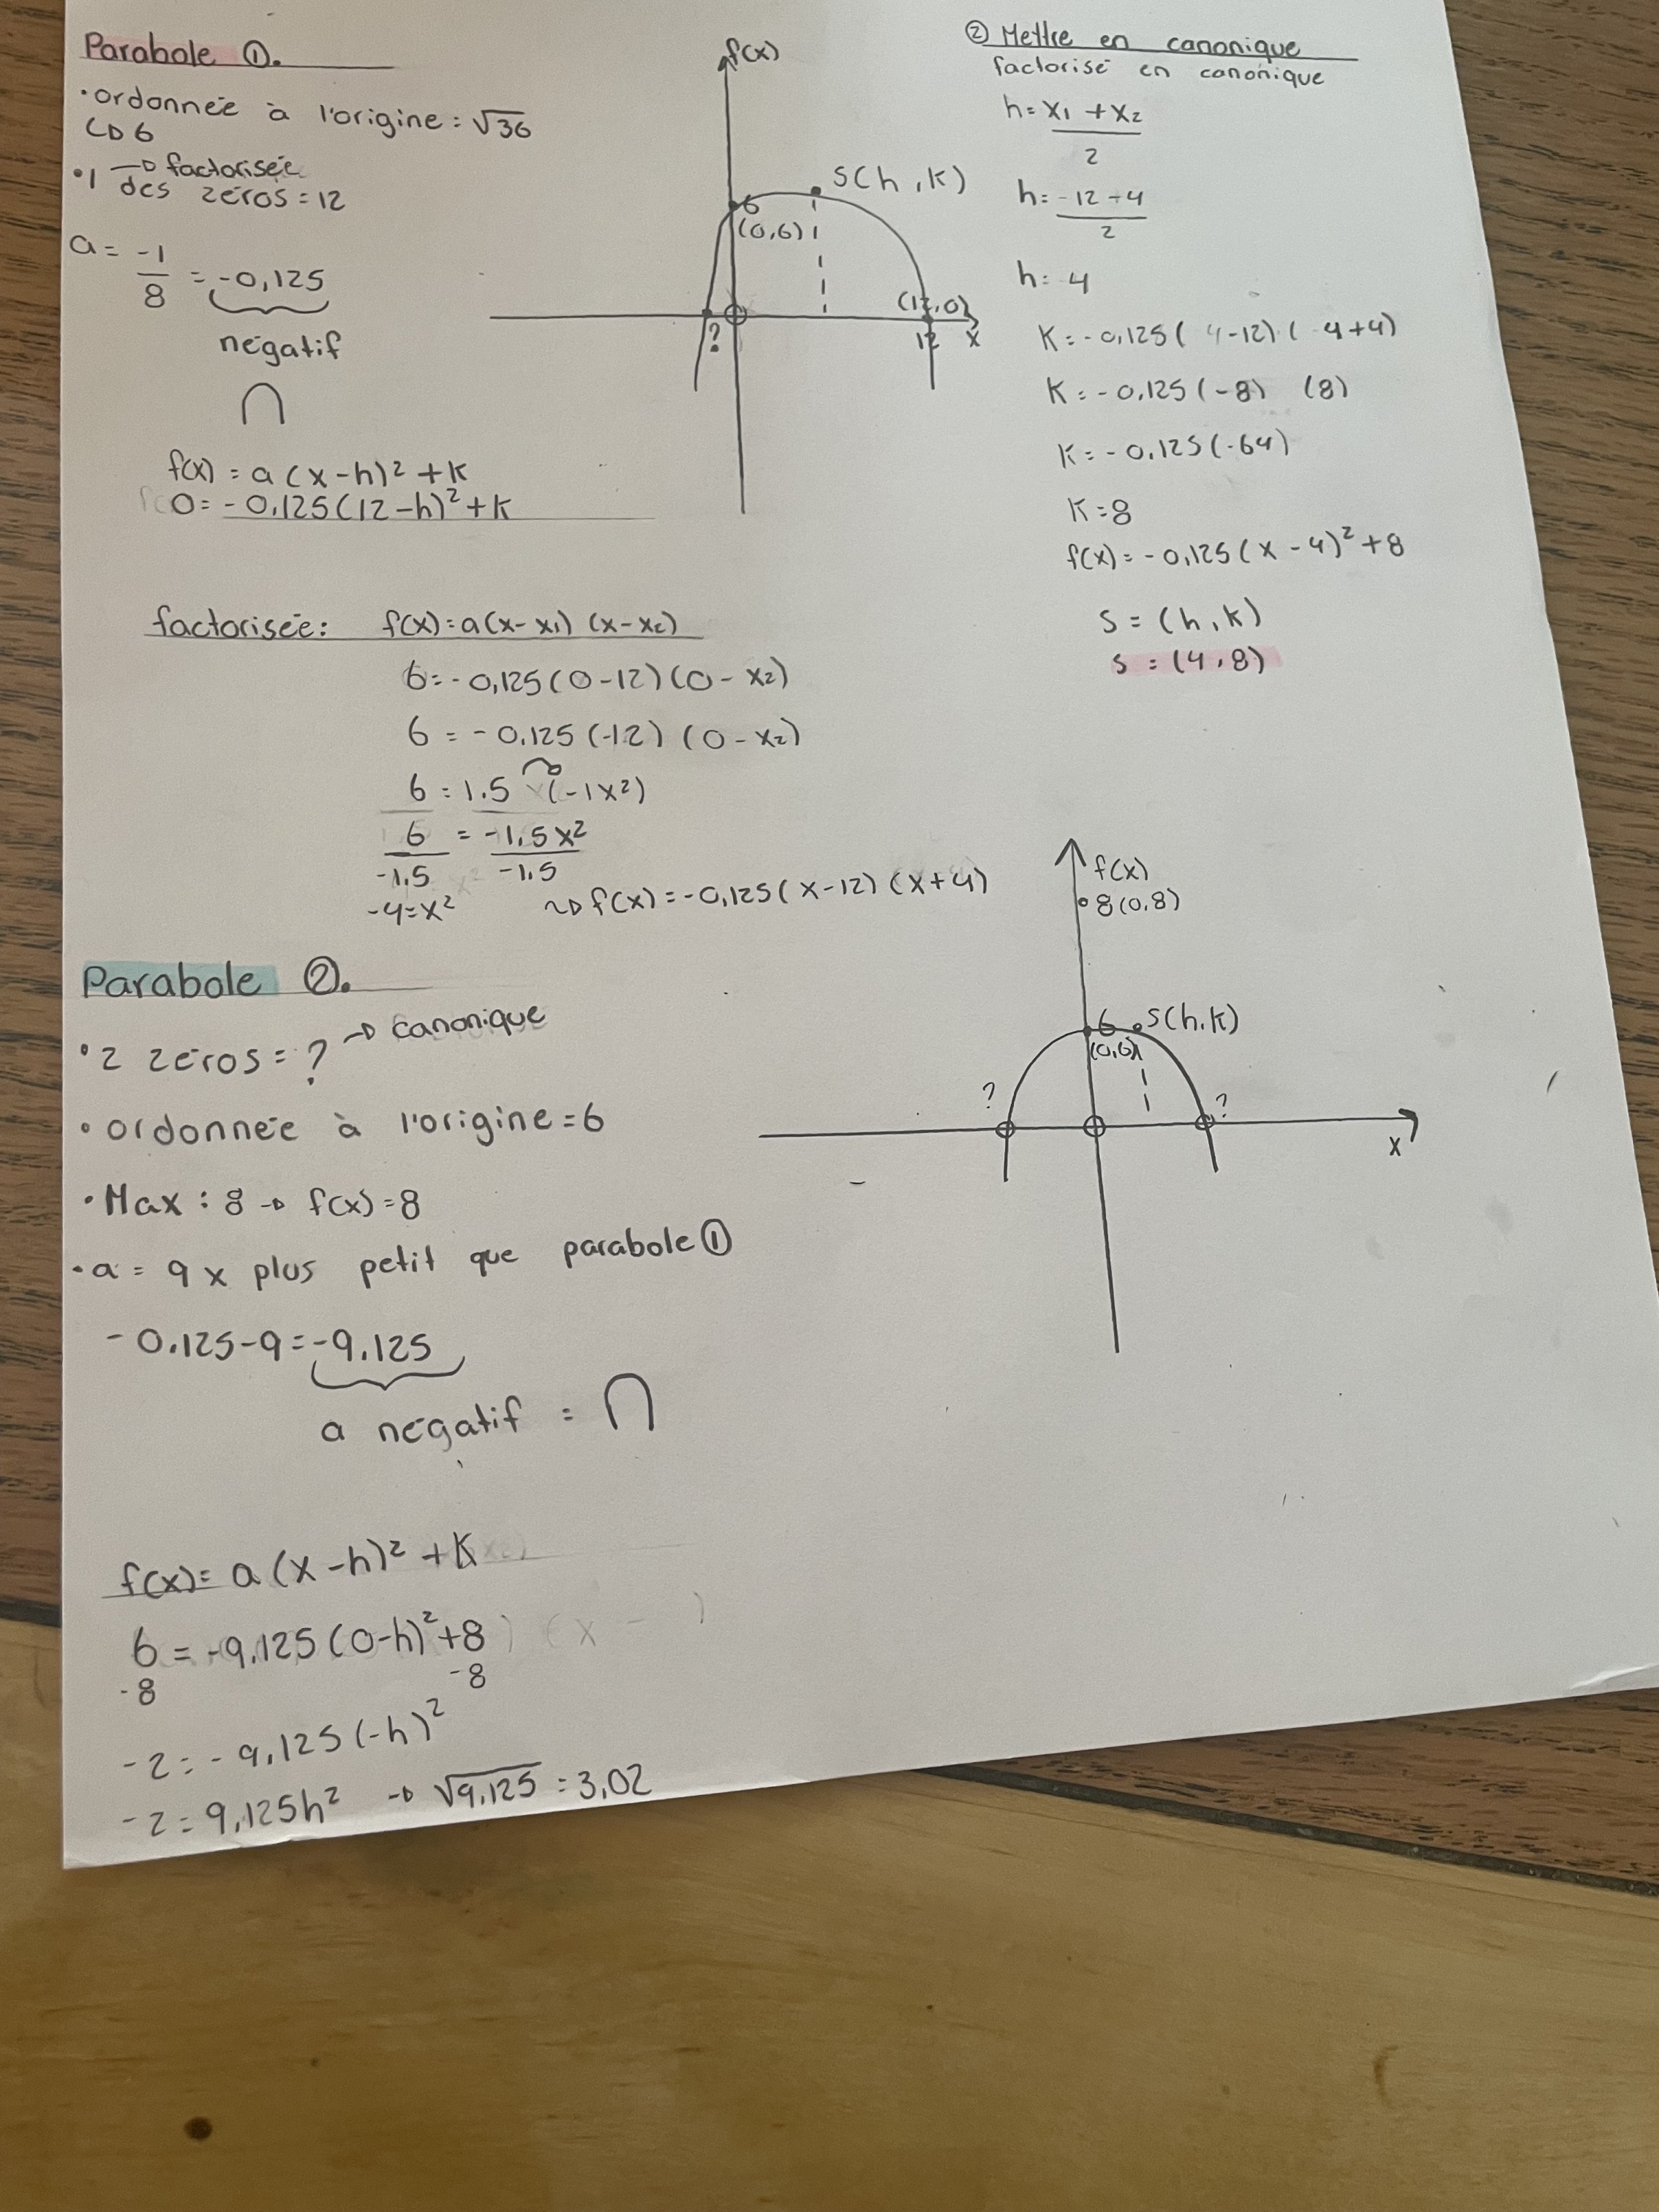 Parabole ①.
•ordonnée à l'origine: √36
↳ 6
→ factorisée
•1 des zéros = 12
a = -1/8 = -0,125
négatif
∩
f(x) = a(x-h)² + k
0 = -0,125(12-h)² + k
f(x)
6
(0,6)
S(h,k)
(12,0)
?
12
x
② Mettre en canonique
factorisé en canonique
h = x₁ + x₂
2
h = -12 - 4
2
h = 4
K = -0,125( 4-12) ( 4+4)
K = -0,125(-8) (8)
K = -0,125(-64)
K = 8
f(x) = -0,125(x - 4)² + 8
S = (h,k)
S = (4,8)
factorisée: f(x) = a(x-x₁) (x-x₂)
6 = -0,125(0-12)(0-x₂)
6 = -0,125(-12) (0-x₂)
6 = 1.5 (-1x²)
6 = -1,5x²
-1.5 -1.5
-4 = x² → f(x) = -0,125(x-12) (x+4)
Parabole ②.
•2 zéros = ? → canonique
•ordonnée à l'origine = 6
•Max : 8 → f(x) = 8
•a = 9 x plus petit que parabole ①
-0.125-9 = -9.125
a négatif = ∩
f(x)
8(0,8)
6
(0,6)
S(h,k)
?
?
x
f(x) = a(x-h)² + k
6 = -9.125(0-h)² + 8
-8 -8
-2 = -9,125(-h)²
-2 = 9,125h² → √9,125 = 3,02